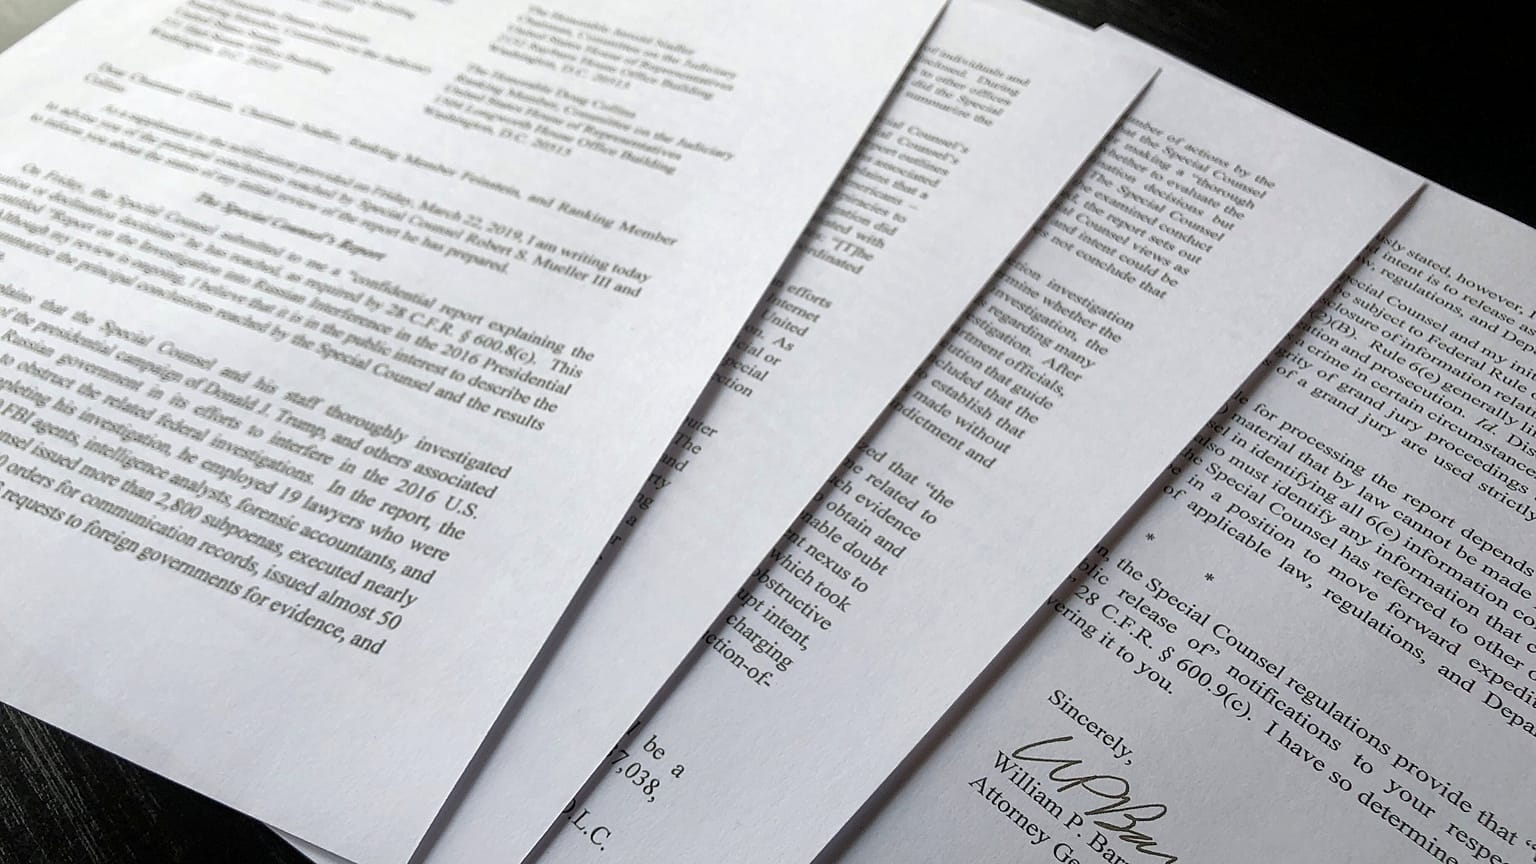 The Honorable Jerrold Nadler
Chairman, Committee on the Judiciary
United States House of Representatives
2132 Rayburn House Office Building
Washington, D.C. 20515
The Honorable Doug Collins
Ranking Member, Committee on the Judiciary
United States House of Representatives
1504 Longworth House Office Building
Washington, D.C. 20515
Dear Chairman Graham, Chairman Nadler, Ranking Member Feinstein, and Ranking Member
Collins:
As a supplement to the notification provided on Friday, March 22, 2019, I am writing today
to advise you of the principal conclusions reached by Special Counsel Robert S. Mueller III and
to inform you about the status of my initial review of the report he has prepared.
The Special Counsel's Report
On Friday, the Special Counsel submitted to me a "confidential report explaining the
or declination decisions" he has reached, as required by 28 C.F.R. § 600.8(c). This
entitled "Report on the Investigation into Russian Interference in the 2016 Presidential
Although my review is ongoing, I believe that it is in the public interest to describe the
summarize the principal conclusions reached by the Special Counsel and the results
plains that the Special Counsel and his staff thoroughly investigated
of the presidential campaign of Donald J. Trump, and others associated
Russian government in its efforts to interfere in the 2016 U.S.
to obstruct the related federal investigations. In the report, the
pleting his investigation, he employed 19 lawyers who were
FBI agents, intelligence analysts, forensic accountants, and
nsel issued more than 2,800 subpoenas, executed nearly
0 orders for communication records, issued almost 50
requests to foreign governments for evidence, and
of individuals and
closed. During
to other offices
did the Special
summarize the
al Counsel's
Counsel's
outlines
associated
mericans
did
with
"[T]he
efforts
nternet
United
As
cial or
pecial
ction
uter
The
and
rty
ng
a
mber of actions by the
at the Special Counsel
making a "thorough
hether to evaluate the
nation decisions but
The Special Counsel
examined conduct
, the report sets out
al Counsel views as
nd intent could be
s not conclude that
tion investigation
mine whether the
nvestigation, the
regarding many
stigation. After
rtment officials,
ution that guide
ncluded that the
establish that
made without
ndictment and
ed that "the
ne related to
ch evidence
o obtain and
nable doubt
nt nexus to
which took
bstructive
upt intent,
charging
ction-of-
l be a
7,038,
O.L.C.
sly stated, however,
intent is to release as
w, regulations, and Dep
ecial Counsel and my init
e subject to Federal Rule
closure of information relat
(2)(B). Rule 6(e) generally li
ation and prosecution. Id. Dis
crime in certain circumstanc
grity of grand jury proceedings
of a grand jury are used strictly
le for processing the report depends
material that by law cannot be made
sel in identifying all 6(e) information co
also must identify any information that c
the Special Counsel has referred to other o
be in a position to move forward expedit
of applicable law, regulations, and Depa
* *
n, the Special Counsel regulations provide that
blic release of" notifications to your respe
28 C.F.R. § 600.9(c). I have so determine
vering it to you.
Sincerely,
William P. Bar
Attorney Ge